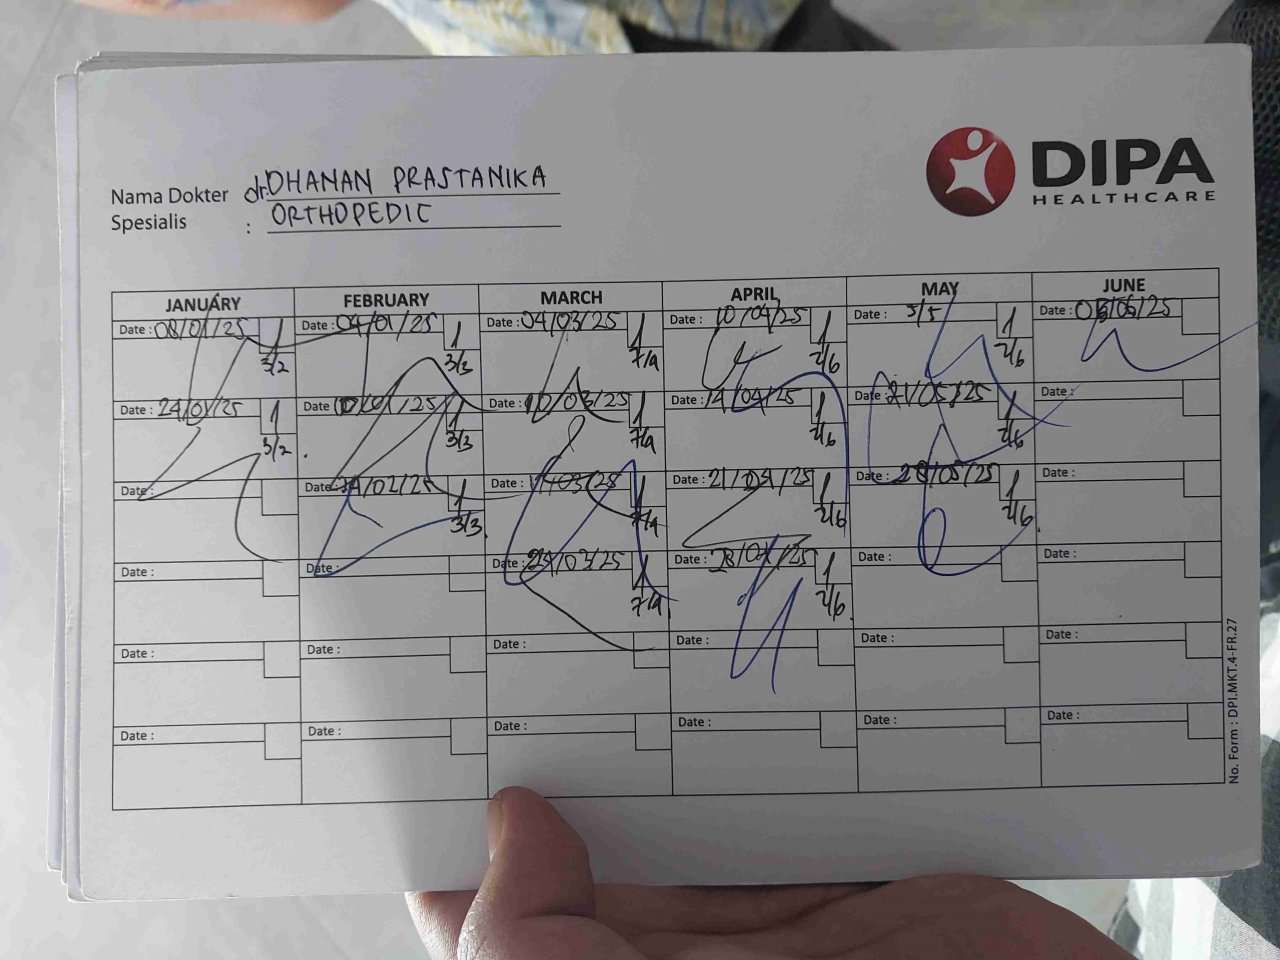 DIPA
HEALTHCARE
Nama Dokter dr. DHANAN PRASTANIKA
Spesialis : ORTHOPEDIC
JANUARY FEBRUARY MARCH APRIL MAY JUNE
Date : 08/01/25 1 Date : 04/01/25 1 Date : 04/03/25 1 Date : 10/04/25 1 Date : 5/5 1 Date : 03/06/25
3/2 3/3 7/4 2/6 2/6
Date : 24/01/25 1 Date : 1 Date : 10/03/25 1 Date : 14/04/25 1 Date : 21/05/25 1 Date :
3/2 3/3 7/4 2/6 2/6
Date : Date : 24/02/25 1 Date : 1 Date : 21/04/25 1 Date : 28/05/25 1 Date :
3/3 7/4 2/6 2/6
Date : Date : Date : 24/03/25 1 Date : 28/04/25 1 Date : Date :
7/4 2/6
Date : Date : Date : Date : Date : Date :
Date : Date : Date : Date : Date : Date :
No. Form : DPI.MKT.4-FR.27